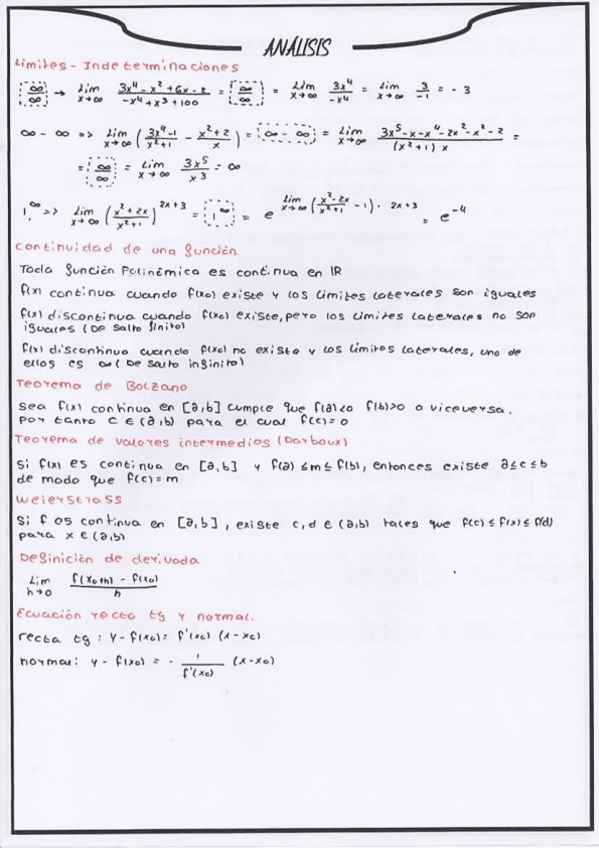 ANÁLISIS
Límites - Indeterminaciones
∞/∞ → Lim x→∞ (3x⁴ - x² + 6x - 2)/(-x⁴ + x³ + 100) = ∞/∞ = Lim x→∞ 3x⁴/-x⁴ = Lim x→∞ 3/-1 = -3
∞ - ∞ => Lim x→∞ ((3x⁴-1)/(x²+1) - (x²+2)/x) = ∞ - ∞ = Lim x→∞ (3x⁵-x-x⁴-2x²-x²-2)/((x²+1) x) =
= ∞/∞ = Lim x→∞ 3x⁵/x³ = ∞
1^∞ => Lim x→∞ ((x²+2x)/(x²+1))^(2x+3) = 1^∞ = e^(Lim x→∞ ((x²-2x)/(x²+1) - 1) · 2x+3) = e⁻⁴
Continuidad de una función
Toda función Polinómica es continua en IR
f(x) continua cuando f(x₀) existe y los límites laterales son iguales
f(x) discontinua cuando f(x₀) existe, pero los límites laterales no son
iguales (De salto finito)
f(x) discontinua cuando f(x₀) no existe y los límites laterales, uno de
ellos es ∞ (De salto infinito)
Teorema de Bolzano
Sea f(x) continua en [a,b] cumple que f(a)<0 f(b)>0 o viceversa.
Por tanto C ∈ (a,b) para el cual f(c)=0
Teorema de valores intermedios (Darboux)
Si f(x) es continua en [a,b] y f(a) ≤ m ≤ f(b), entonces existe a≤c≤b
de modo que f(c)=m
Weierstrass
Si f es continua en [a,b], existe c,d ∈ (a,b) tales que f(c) ≤ f(x) ≤ f(d)
para x ∈ (a,b)
Definición de derivada
Lim h→0 (f(x₀+h) - f(x₀))/h
Ecuación recta tg y normal.
recta tg: y-f(x₀) = f'(x₀) (x-x₀)
normal: y - f(x₀) = - 1/f'(x₀) (x-x₀)